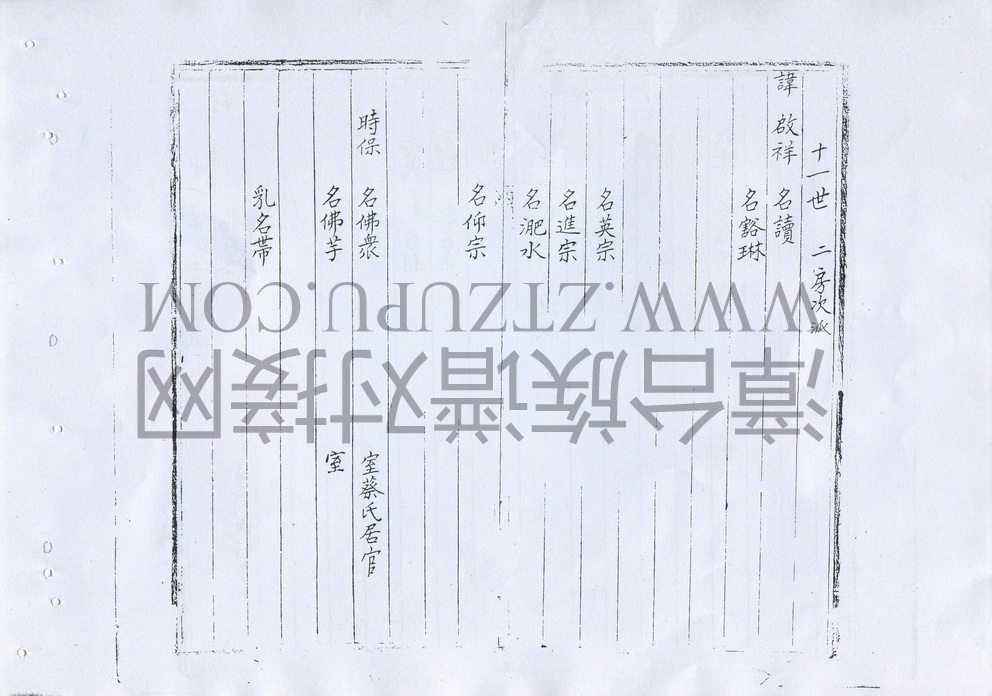 十一世 二房次派
諱啟祥 名讀
名豁琳
名英宗
名進宗
名淝水
名仰宗
時保 名佛衆 室蔡氏居官
名佛芋 室
乳名帶
WWW.ZTZUPU.COM
漳台族谱对接网